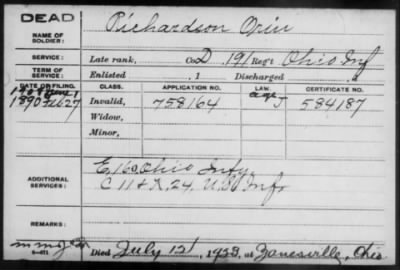 DEAD
NAME OF SOLDIER: Richardson Orin
SERVICE: Late rank, Co. D, 191 Reg't Ohio Inf
TERM OF SERVICE: Enlisted , 1 Discharged , 1
DATE OF FILING. CLASS. APPLICATION NO. LAW. CERTIFICATE NO.
1890 Feb 27 Invalid, 758164 J 584187
Widow,
Minor,
ADDITIONAL SERVICES: E, 160 Ohio Infy
C 11 & K, 24, U.S. Inf,
REMARKS:
Died July 12, 1923, at Zanesville, Ohio